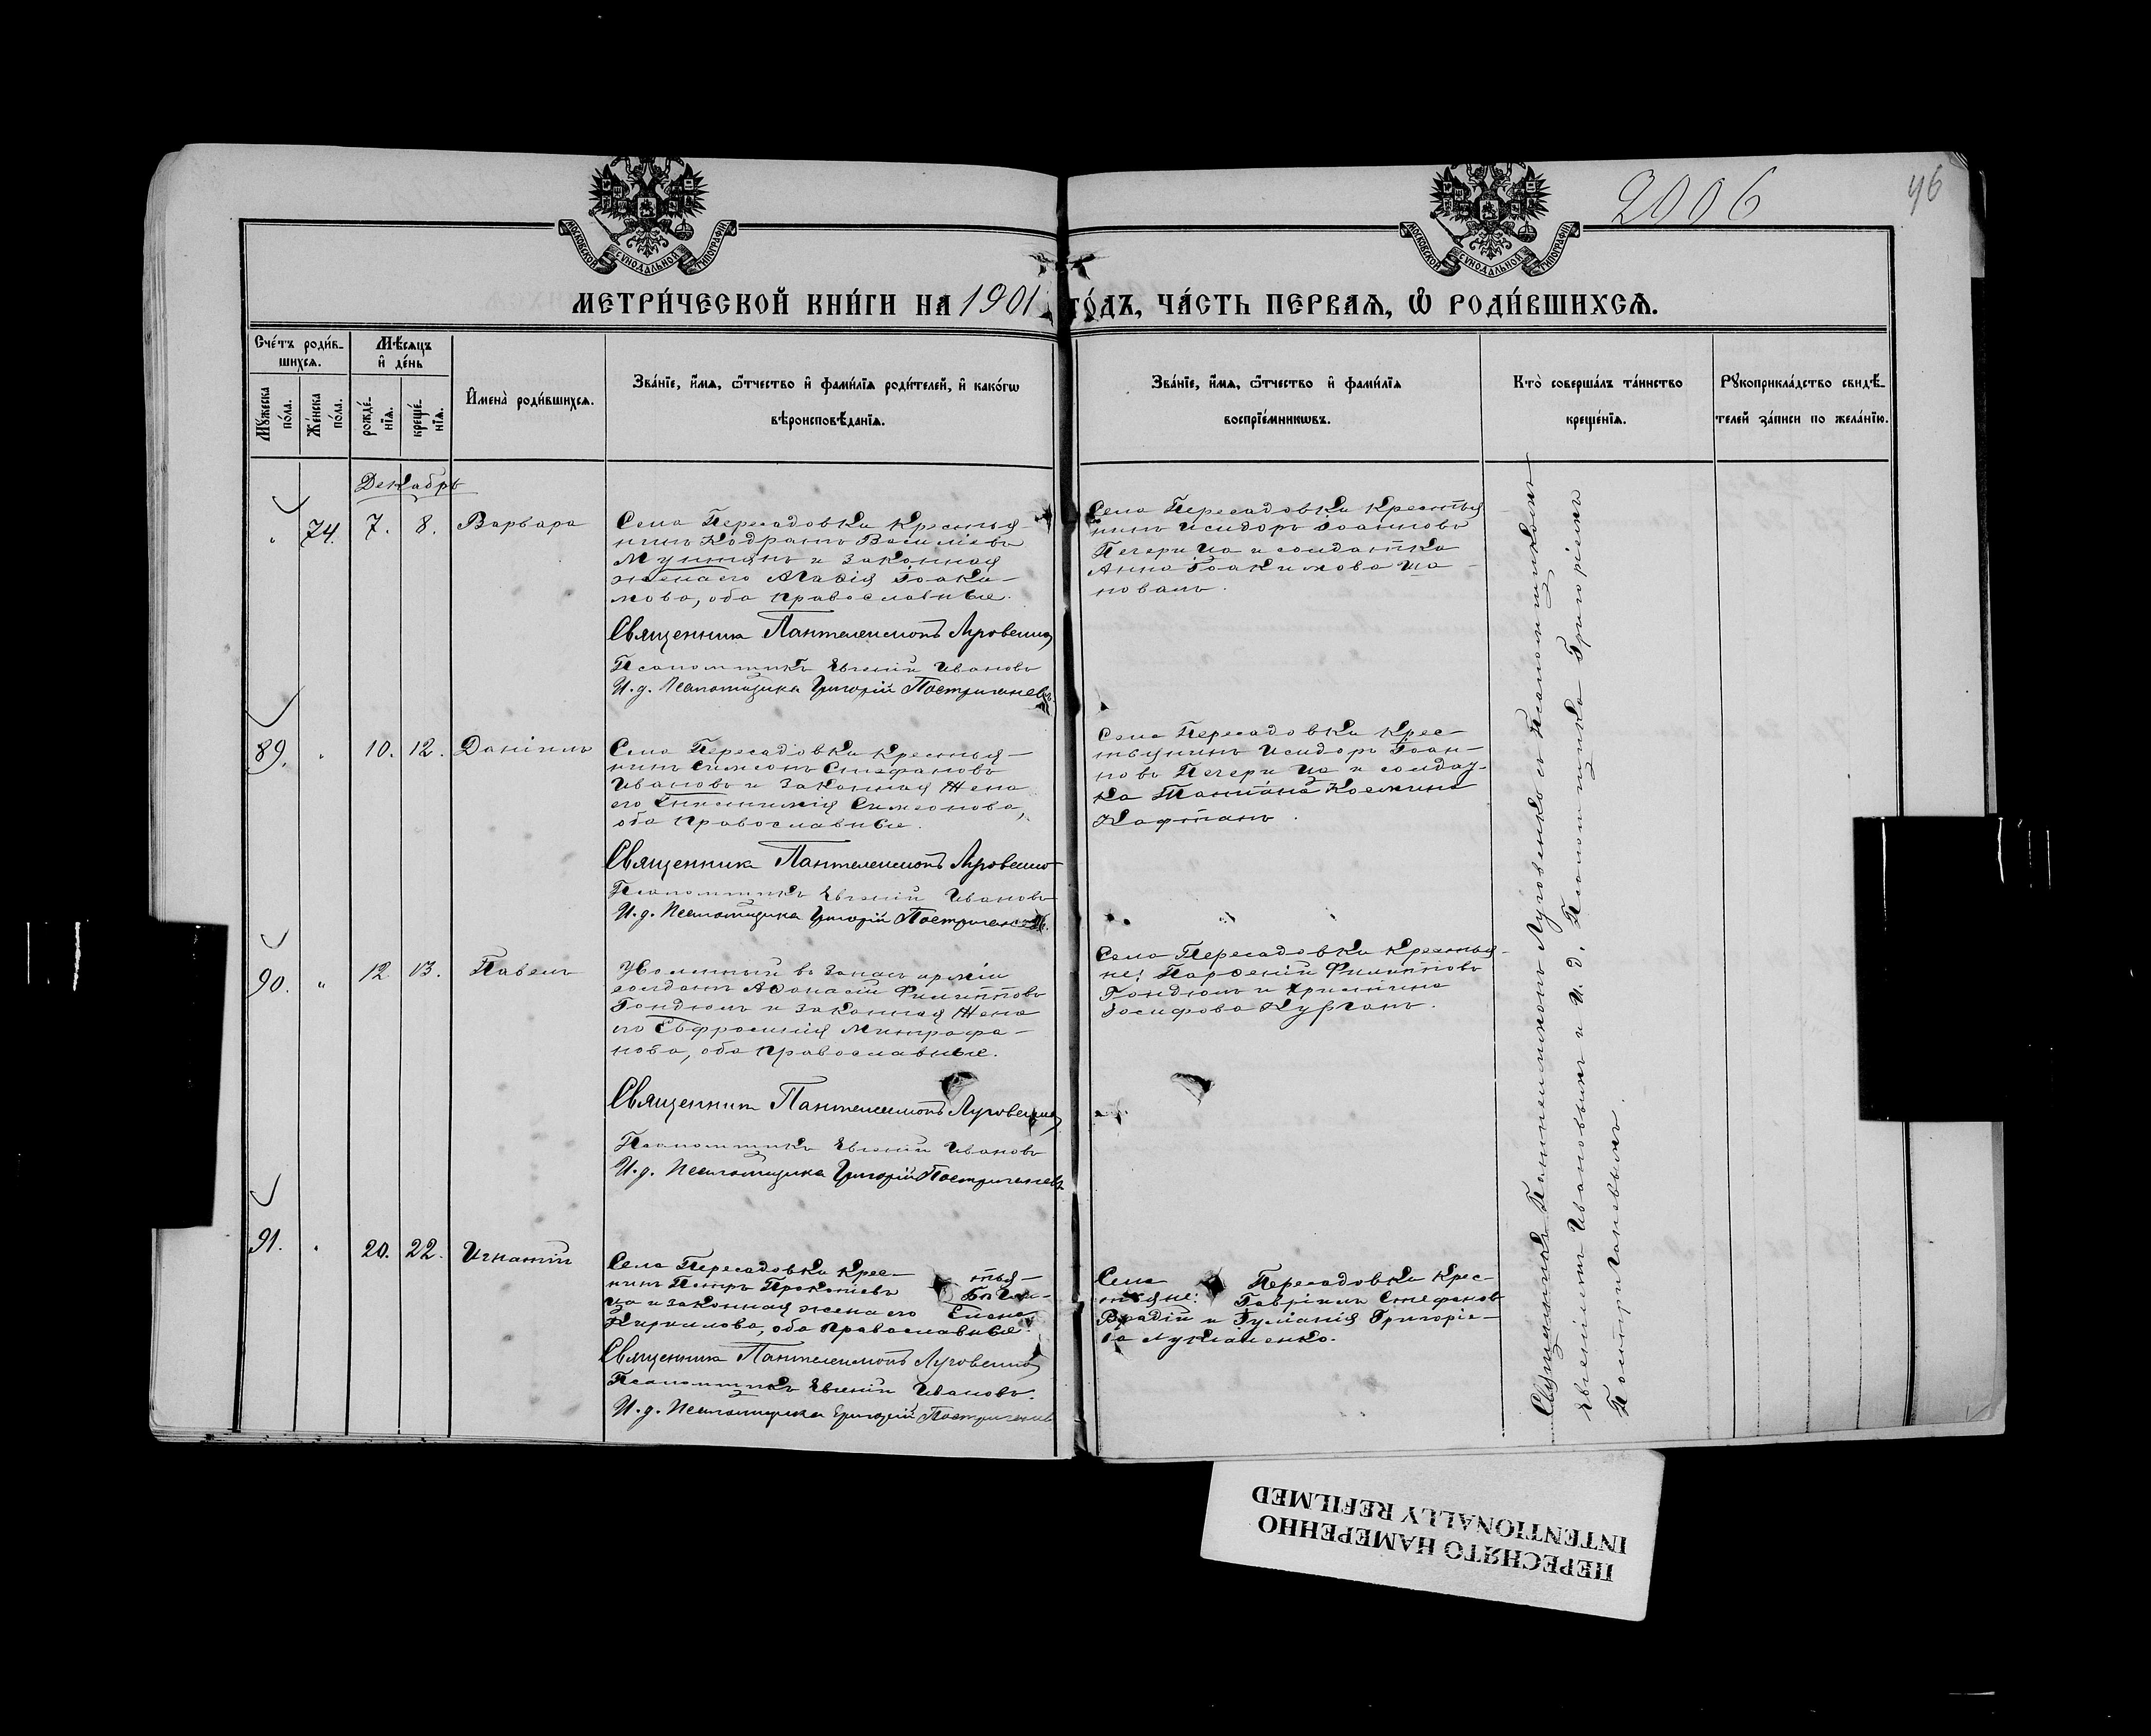 2006
46
МОСКОВСКОЙ СѴНОДАЛЬНОЙ ТИПОГРАФІИ
МОСКОВСКОЙ СѴНОДАЛЬНОЙ ТИПОГРАФІИ
МЕТРИ́ЧЕСКОЙ КНИ́ГИ НА 1901 ГО́ДЪ, ЧА́СТЬ ПЕРВАѦ, Ѡ҆ РОДИ́ВШИХСѦ.
Сче́тъ роди́в-
шихсѧ.
Мꙋ́жеска по́ла.
Же́нска по́ла.
Мѣ́сѧцъ
и҆ де́нь
рожде́-
нїѧ.
креще́-
нїѧ.
И҆мена̀ роди́вшихсѧ.
Зва́нїе, и҆́мѧ, ѻ҆́тчество и҆ фами́лїѧ роди́телей, и҆ како́гѡ
вѣроисповѣ́данїѧ.
Зва́нїе, и҆́мѧ, ѻ҆́тчество и҆ фами́лїѧ
воспрїе́мникѡвъ.
Кто̀ соверша́лъ та́инство
креще́нїѧ.
Рꙋкоприкла́дство свидѣ́-
телей за́писи по жела́нїю.
Декабрь
" 74. 7. 8. Варвара
Села Пересадовки крестья-
нинъ Кодратъ Василіевъ
Мунтянъ и законная
жена его Агаѳія Іоаки-
мова, оба православные.
Священникъ Пантелеимонъ Луговенко
Псаломщикъ Евгеній Ивановъ
И. д. Псаломщика Григорій Постригачевъ
Села Пересадовки крестья-
нинъ Исидоръ Іоанновъ
Печерица и солдатка
Анна Іоакимова Ша-
повалъ.
89. " 10. 12. Даніилъ
Села Пересадовки крестья-
нинъ Симеонъ Стефановъ
Ивановъ и законная жена
его Симеонова,
оба православные.
Священникъ Пантелеимонъ Луговенко
Псаломщикъ Евгеній Ивановъ
И. д. Псаломщика Григорій Постригачевъ.
Села Пересадовки крес-
тьянинъ Исидоръ Іоан-
новъ Печерица и солдат-
ка Татіана Космина
Кафтанъ.
90. " 12 13. Павелъ
Уволенный въ запасъ арміи
солдатъ Аѳанасій Филипповъ
Гондюлъ и законная жена
его Евфросинія Митрофа-
нова, оба православные.
Священникъ Пантелеимонъ Луговенко
Псаломщикъ Евгеній Ивановъ
И. д. Псаломщика Григорій Постригачевъ
Села Пересадовки крестья-
не: Парѳеній Филипповъ
Гондюлъ и
Іосифова Курганъ.
91. " 20. 22. Игнатій
Села Пересадовки крес- тья-
нинъ Петръ Прокопіевъ
ца и законная жена его Елена
Кириллова, оба православные.
Священникъ Пантелеимонъ Луговенко
Псаломщикъ Евгеній Ивановъ.
И. д. Псаломщика Григорій Постригачевъ
Села Пересадовки крес-
тьяне: Гавріилъ Стефановъ
Врадій и Іуліанія Григоріе-
ва Лукіаненко.
Священникъ Пантелеимонъ Луговенко съ Псаломщикомъ
Евгеніемъ Ивановымъ и И. д. Псаломщика Григоріемъ
Постригачевымъ.
ПЕРЕСНЯТО НАМЕРЕННО
INTENTIONALLY REFILMED